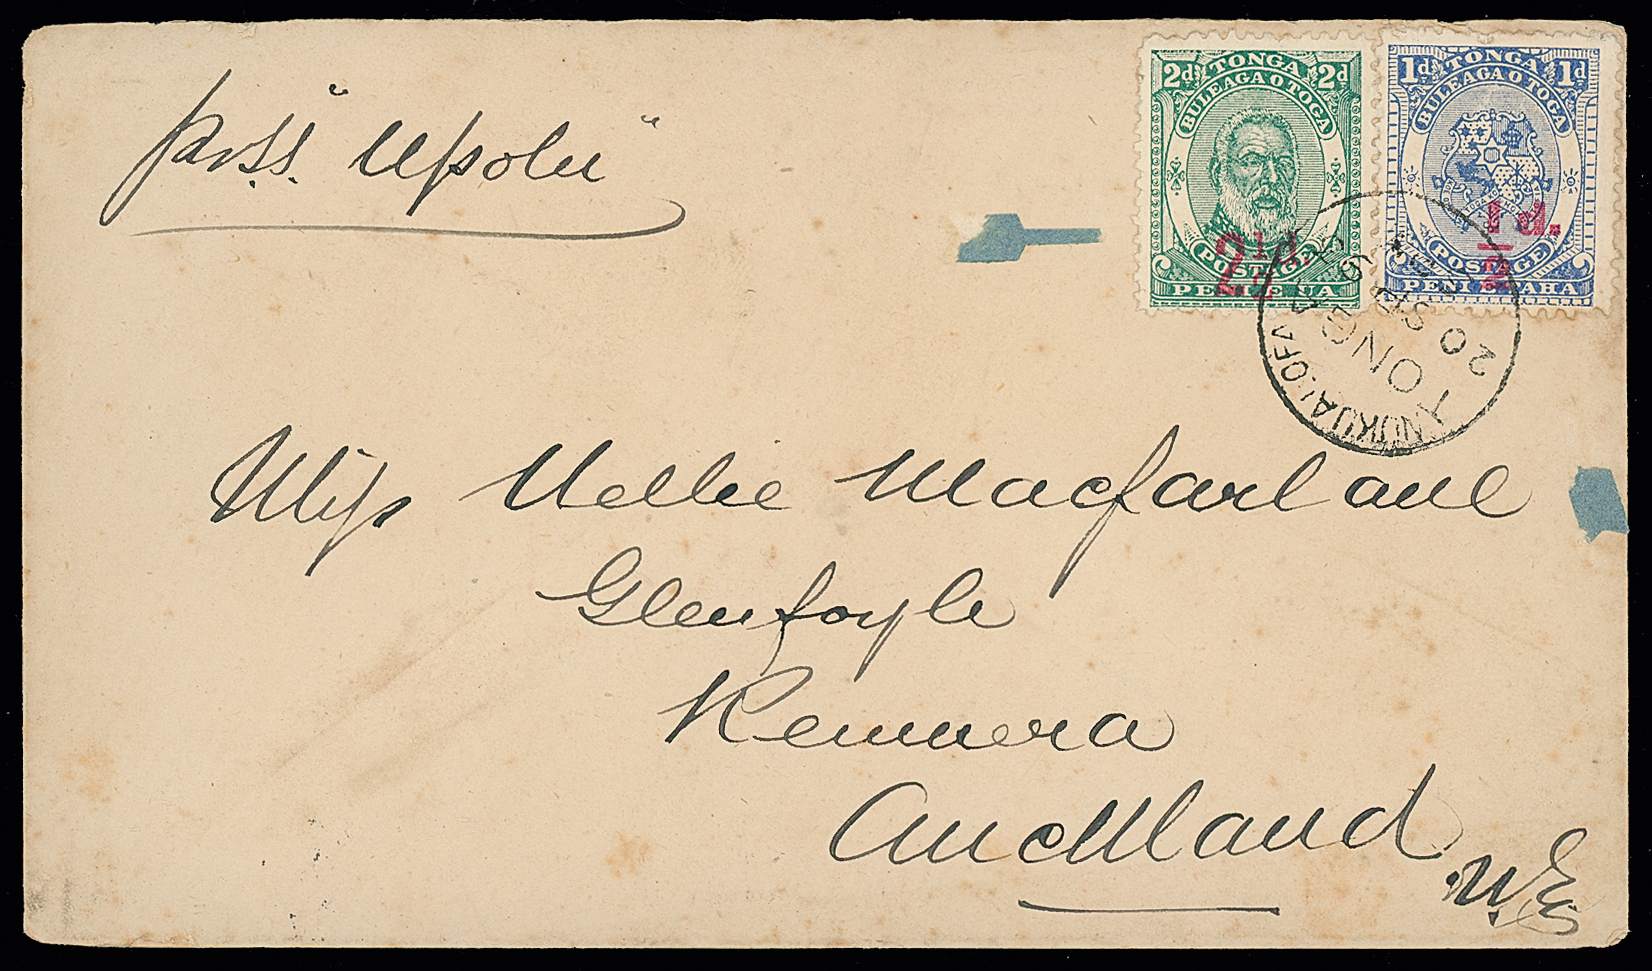 per S.S. "Upolu"
2d TONGA 2d
BULEAGA O TOGA
2½d.
POSTAGE
PENI E UA
1d TONGA 1d
BULEAGA O TOGA
½d.
POSTAGE
PENI E TAHA
NUKUALOFA
TONGA
20
Miss Nellie Macfarlane
Glenfoyle
Remuera
Auckland
N.Z.